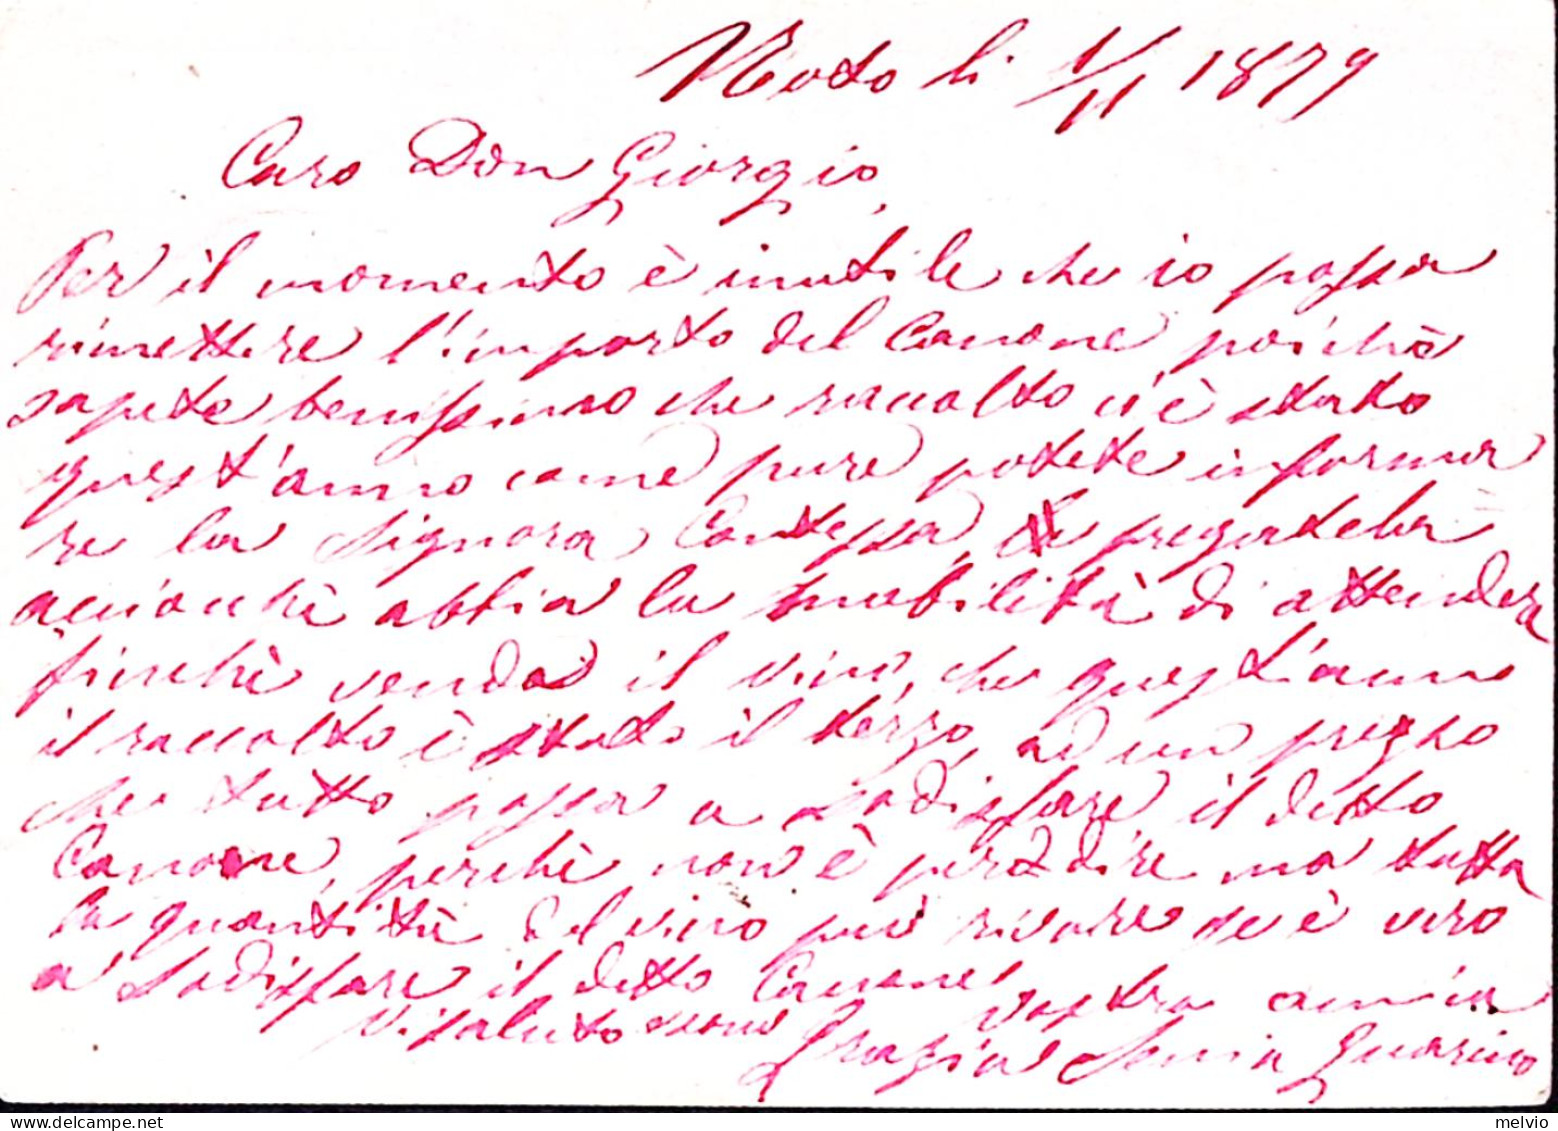 Noto li 1/11 1879
Caro Don Giorgio,
Per il momento è inutile che io possa
rimettere l'importo del Canone poichè
sapete benissimo che raccolto c'è stato
quest'anno come pure potete informa
re la Signora Contessa, e pregatela
acciocchè abbia la nobilità di attendere
finchè venda il vino, che quest'anno
il raccolto è stato il terzo, ad un prezzo
che tutto possa a sodisfare il detto
Canone, perchè non è perdire ma tutta
la quantità del vino può rivare se è vero
a sodisfare il detto Canone
Vi saluto sono vostra amica
Grazia Guarino
melvio